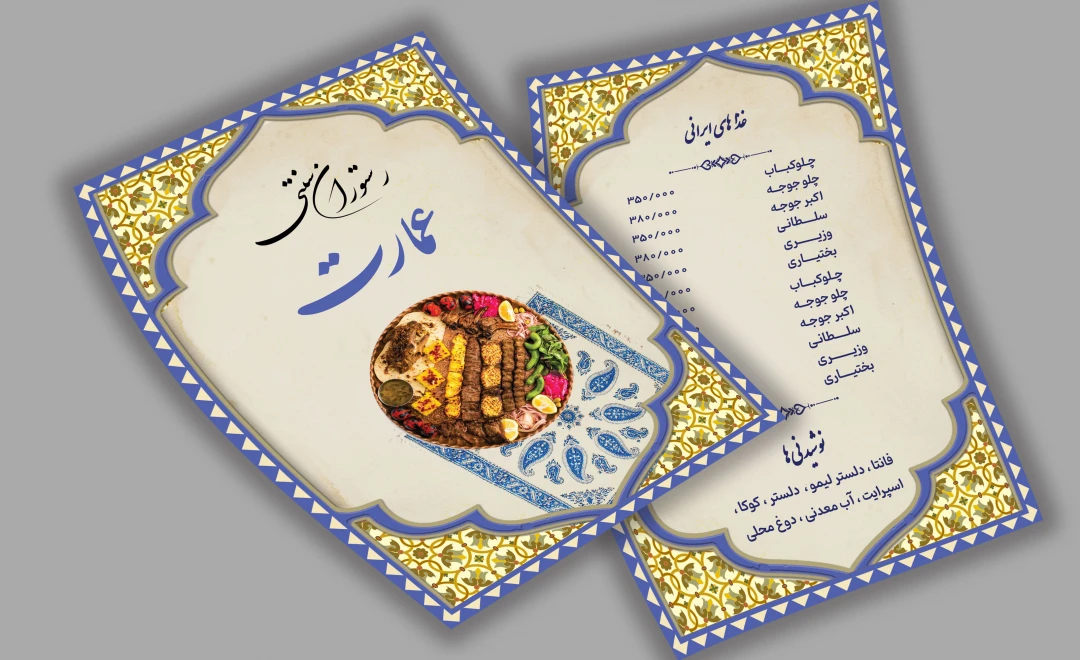 رستوران سنتی
عمارت
غذا های ایرانی
چلوکباب ۳۵۰/۰۰۰
چلو جوجه ۳۸۰/۰۰۰
اکبر جوجه ۳۵۰/۰۰۰
سلطانی ۳۸۰/۰۰۰
وزیری
بختیاری
چلوکباب
چلو جوجه
اکبر جوجه
سلطانی
وزیری
بختیاری
نوشیدنی ها
فانتا، دلستر لیمو، دلستر، کوکا،
اسپرایت، آب معدنی، دوغ محلی